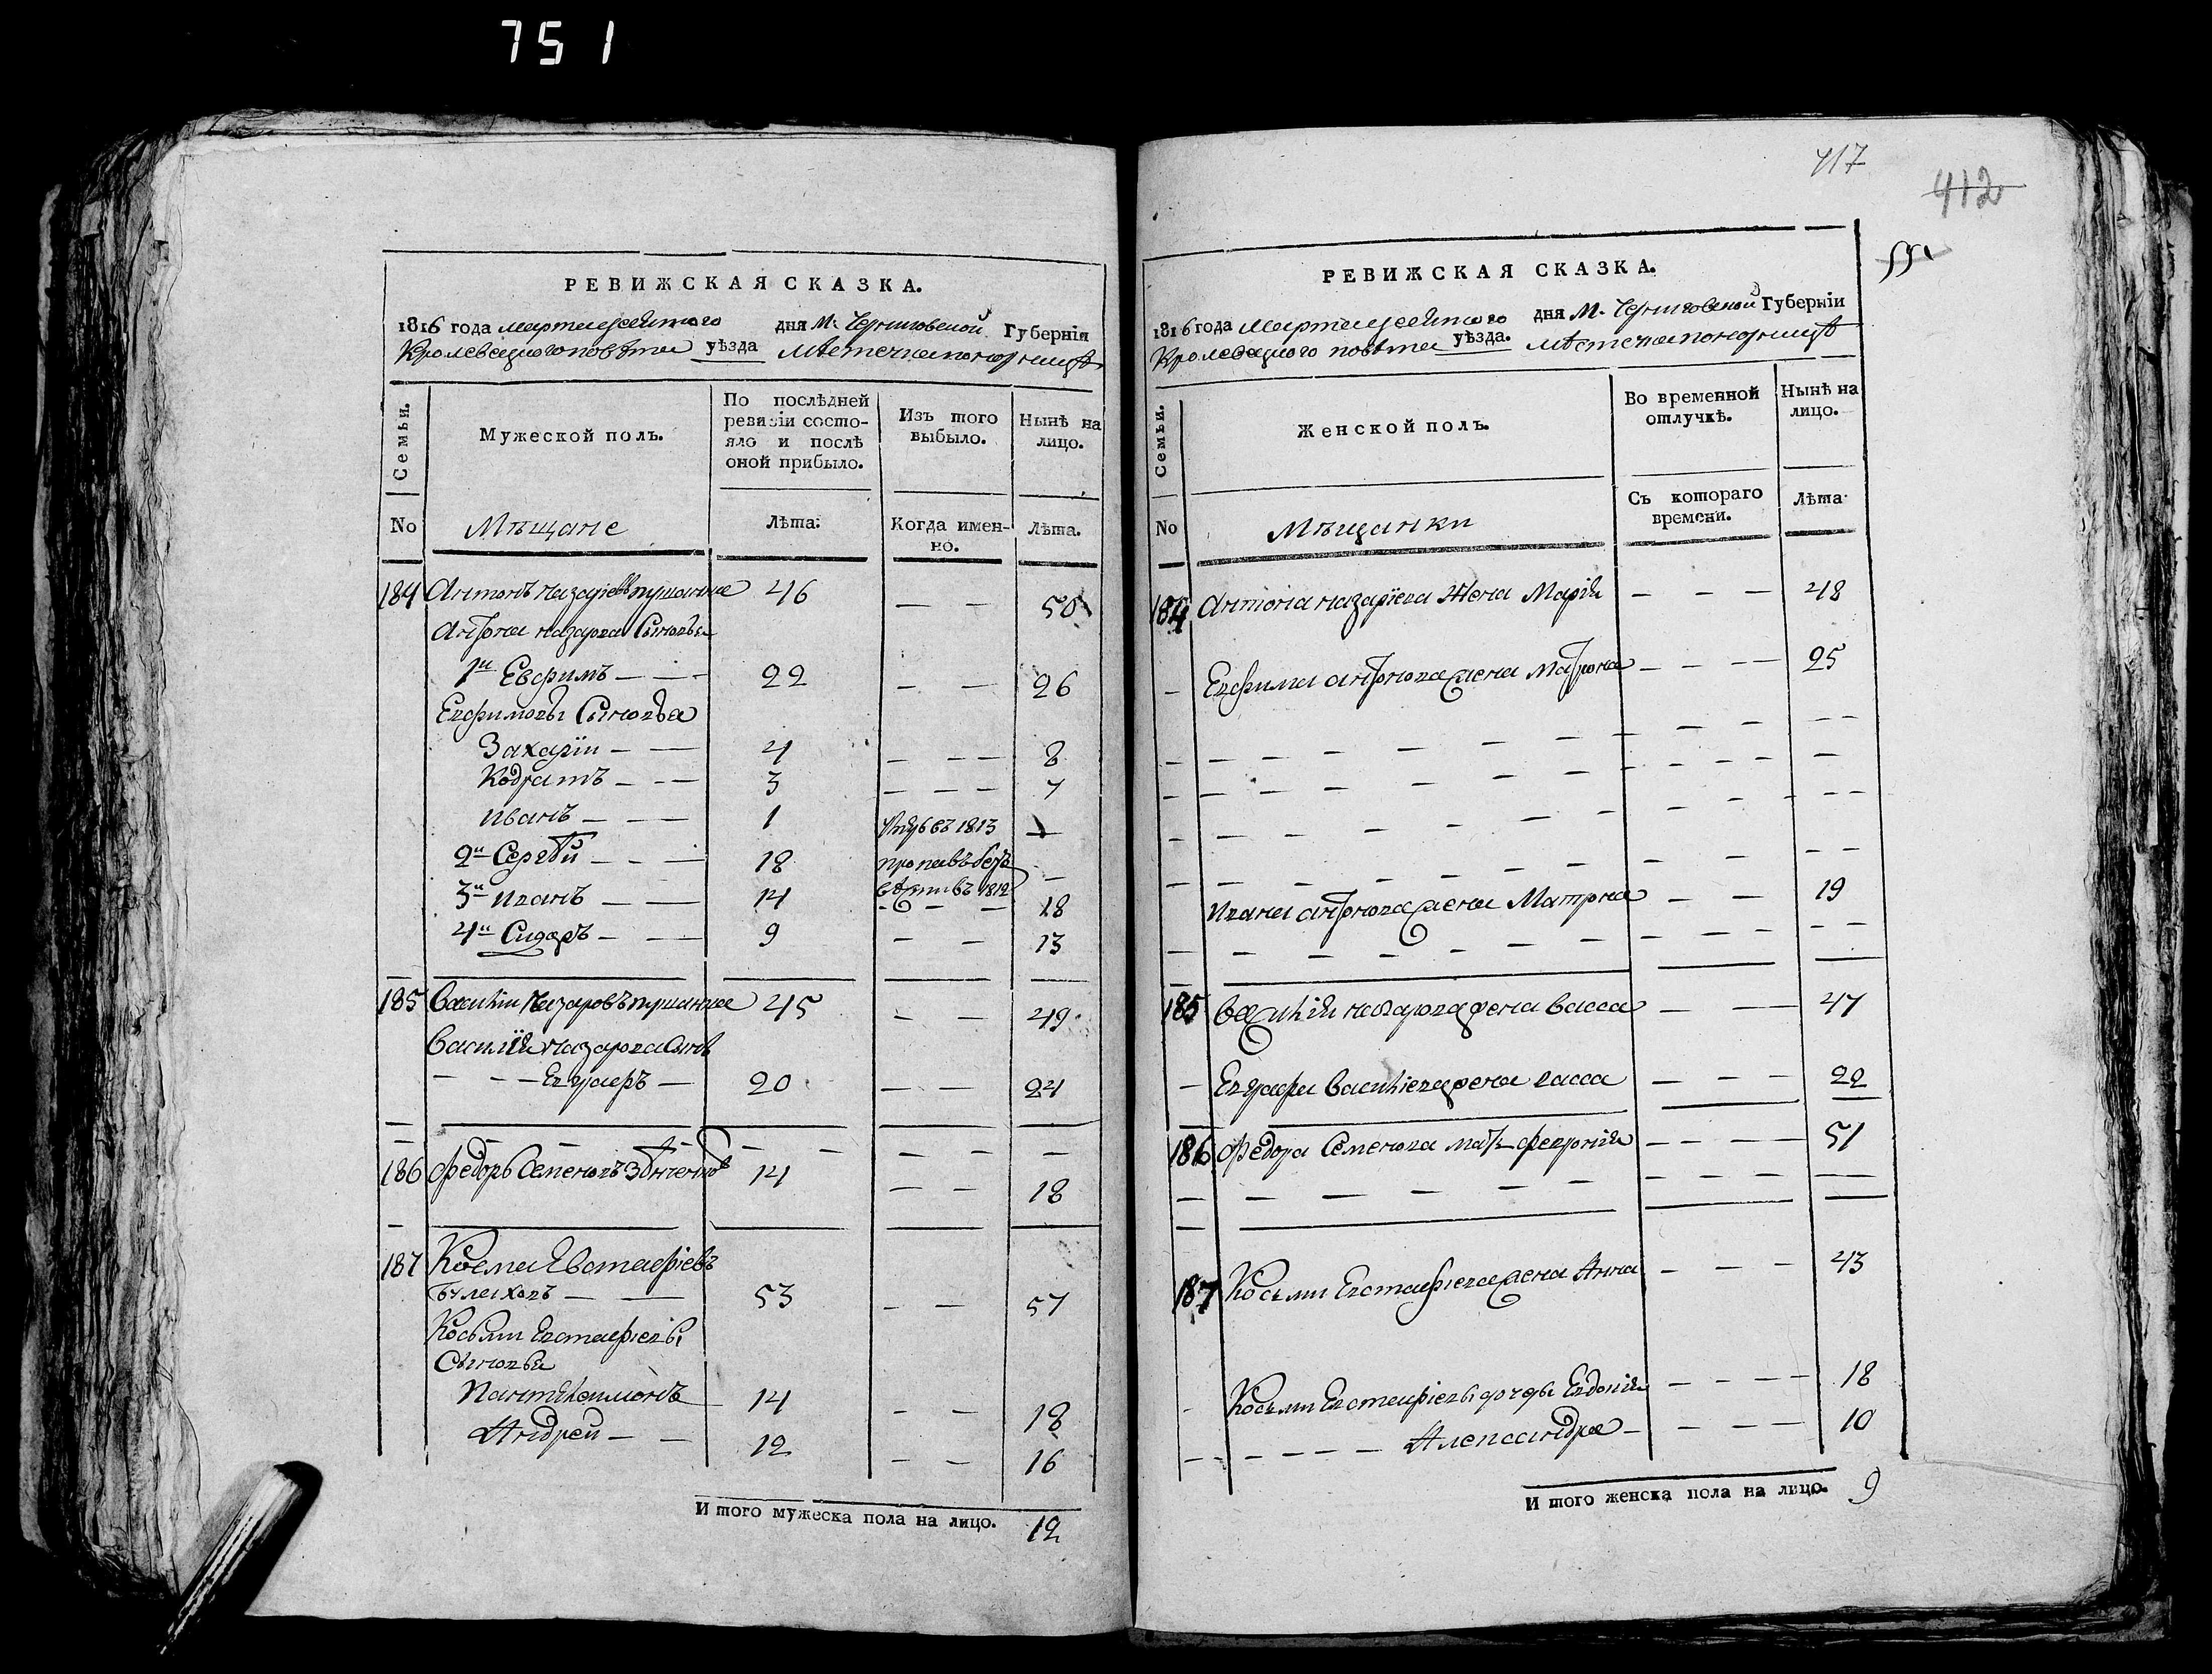 751
РЕВИЖСКАЯ СКАЗКА.
1816 года марта десятого дня М. Черниговской Губерніи
Кролевецкого повѣта уѣзда мѣстечка понорницѣ
Семьи.
Мужеской полъ.
По послѣдней ревизіи состояло и послѣ оной прибыло.
Изъ того выбыло.
Нынѣ на лицо.
No
Мѣщане
Лѣта.
Когда имен-но.
Лѣта.
184 Антонъ назаріевъ 46 — — 50
Антона назарова Сыновья
1й Евфимъ — — 22 — — 26
Евфимовы Сыновья
Захарїи — — 4 — — — 8
Кодратъ — — 3 — — — 7
иванъ — — 1 въ 1813 —
2й Сергѣй — — 18 —
въ 1812
3й иванъ — — 14 — — — 18
4й Сидоръ — — 9 — — 13
185 Василїи Назаровъ 45 — — 49
Василїя назарова Сынъ
— — — Евграфъ — 20 — — 24
186 Федоръ Семеновъ 14 — — 18
187 Косма Евстафіевъ
53 — — 57
Косьмы Евстафіевы
Сыновья
Пантелеимонъ 14 — — 18
Андрей — — 12 — — 16
И того мужеска пола на лицо. 12
417
412
РЕВИЖСКАЯ СКАЗКА.
1816 года марта десятого дня М. Черниговской Губерніи
Кролевецкого повѣта уѣзда. мѣстечка понорницѣ
Семьи.
Женской полъ.
Во временной отлучкѣ.
Нынѣ на лицо.
No
Мѣщанки
Съ котораго времени.
Лѣта
184 Антона назарїева жена Марїя — — — 48
Евфима антонова жена Матрона — — — 25
Ивана антонова жена Матрна — — 19
185 Василїя назарова жена васса — — 47
Евграфа Василїева жена васса — — — 22
186 Федора Семенова мать февронїя — — — — 51
187 Косьмы Евстафіева жена Анна — — — 43
Косьмы Евстафіевы дочеры Евдокїя — — — — 18
Александра — — — — 10
И того женска пола на лицо. 9